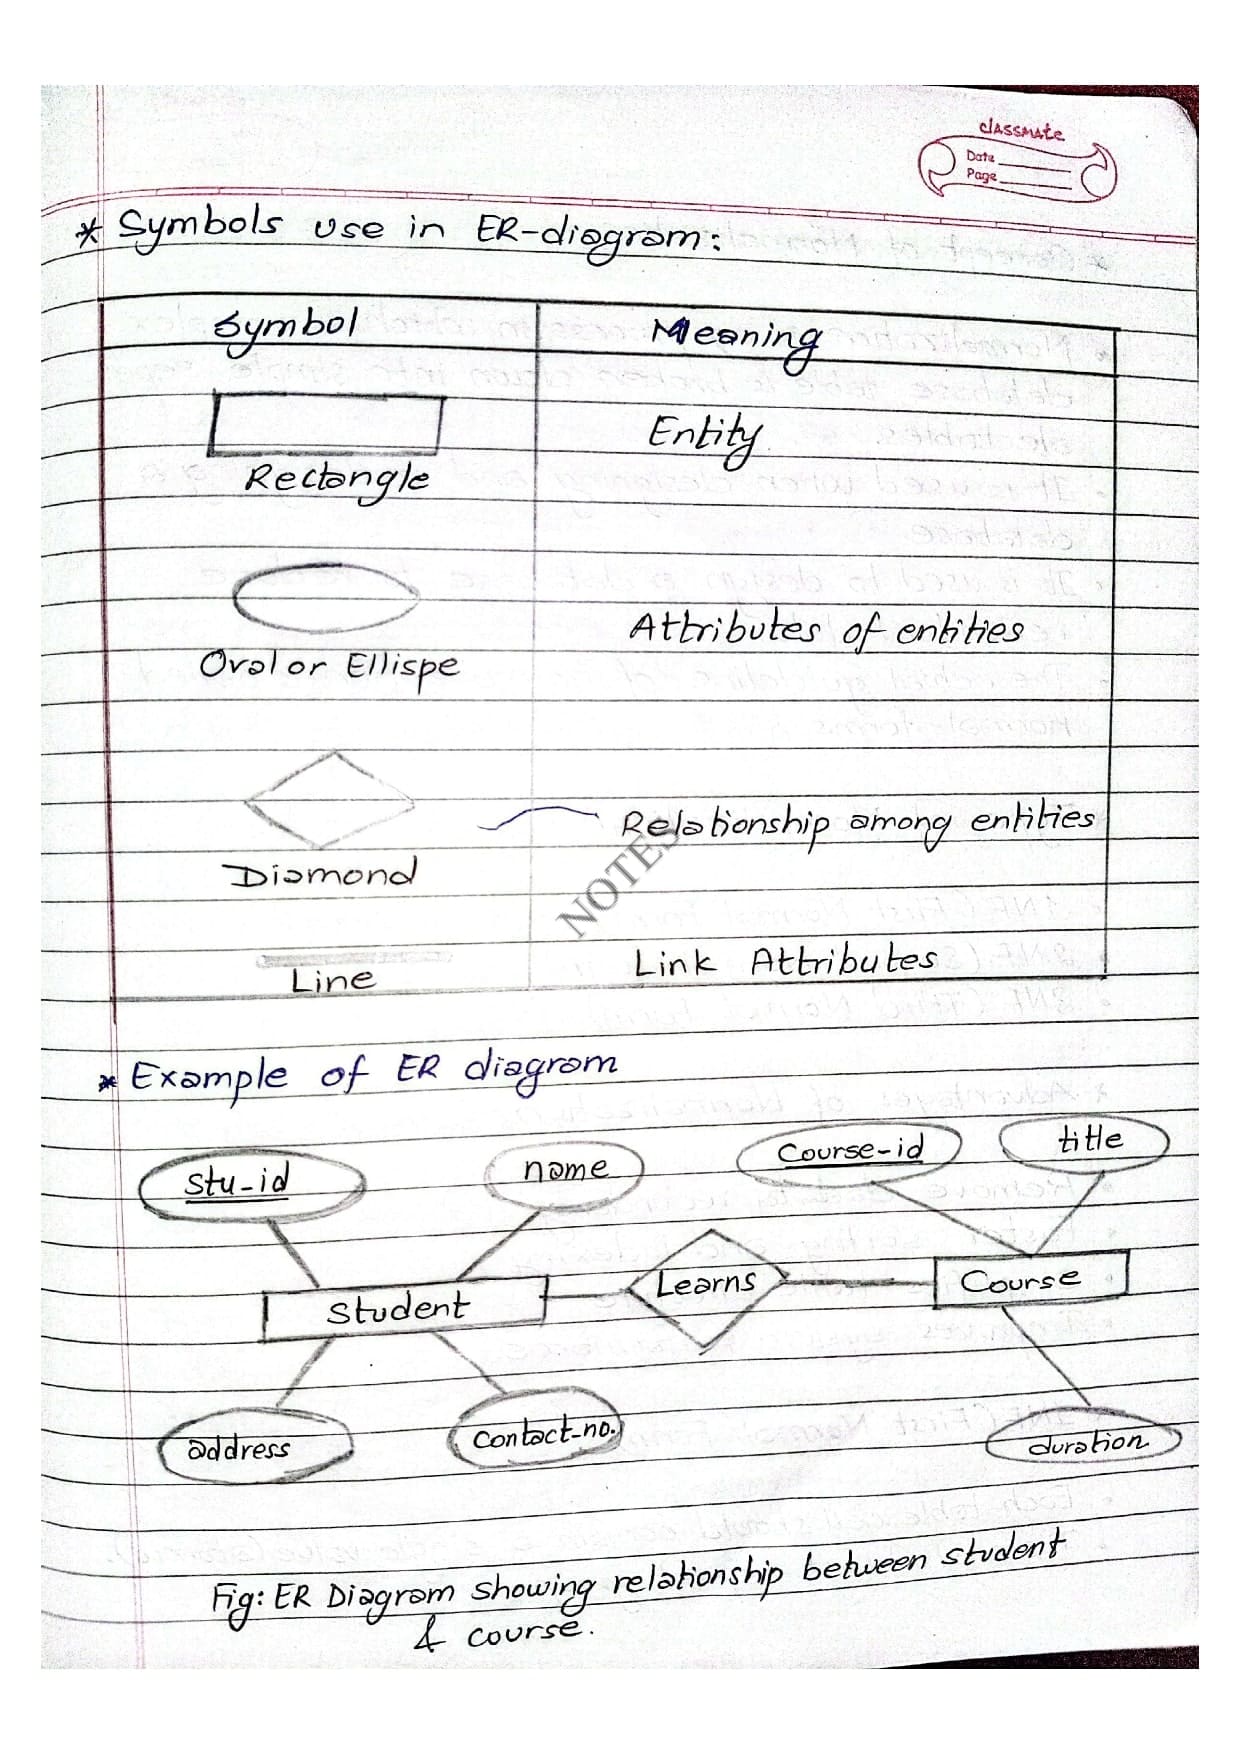 classmate
Date
Page
* Symbols use in ER-diagram:
Symbol Meaning
Entity
Rectangle
Attributes of entities
Oval or Ellispe
Relationship among entities
Diamond
NOTES
Link Attributes
Line
* Example of ER diagram
stu-id name Course-id title
Student Learns Course
address contact-no. duration
Fig: ER Diagram showing relationship between student
& course.